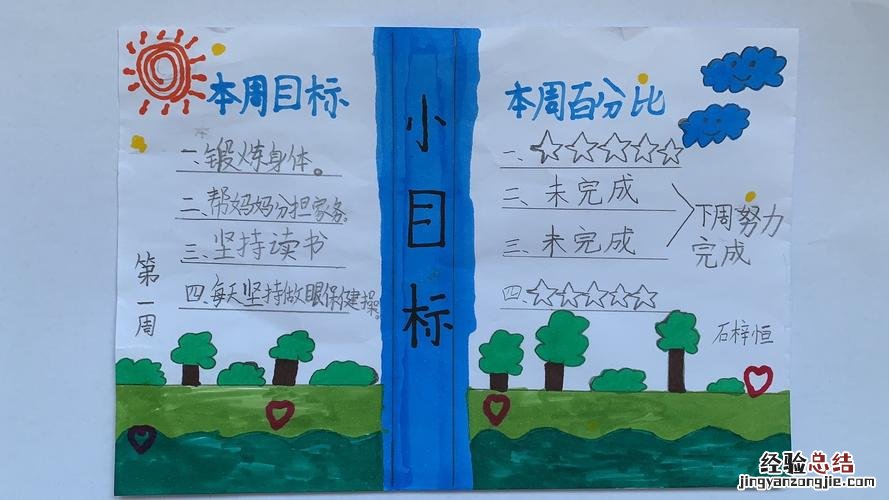 本周目标
一、锻炼身体。
二、帮妈妈分担家务。
三、坚持读书
四、每天坚持做眼保健操。
第一周
小目标
本周百分比
一、☆☆☆☆☆
二、未完成
三、未完成
下周努力
完成
四、☆☆☆☆☆
石梓恒
经验总结
jingyanzongjie.com